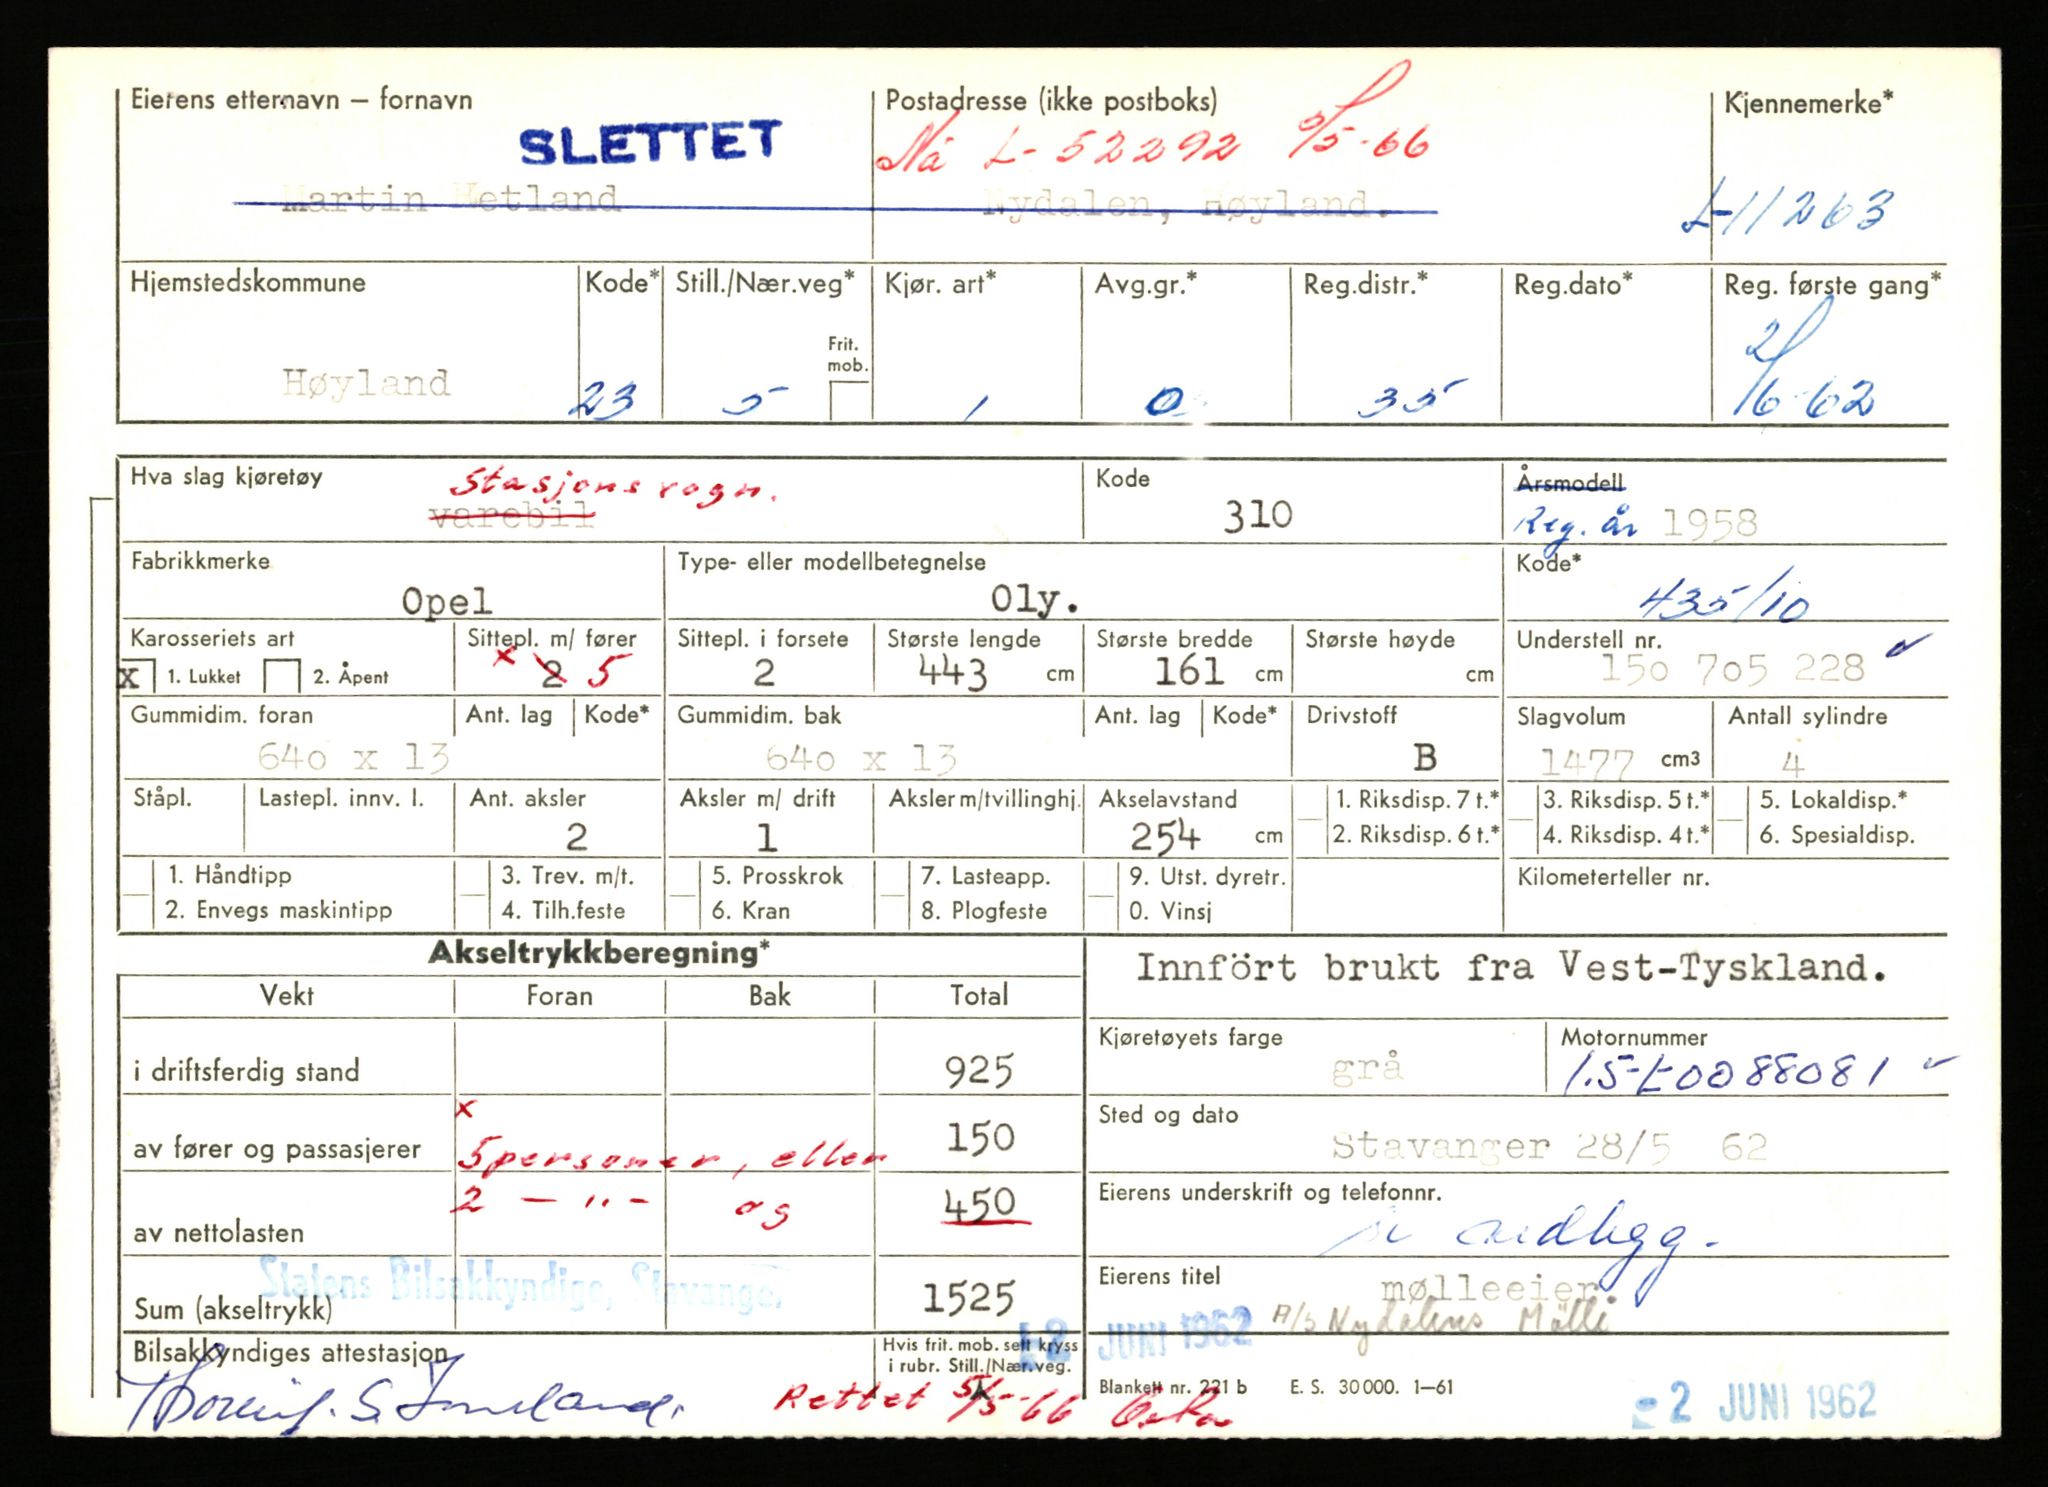 Eierens etternavn – fornavn Postadresse (ikke postboks) Kjennemerke*
SLETTET Nå L-52292 5/5-66
Martin Hetland Nydalen, Høyland. L-11263
Hjemstedskommune Kode* Still./Nær.veg* Kjør. art* Avg.gr.* Reg.distr.* Reg.dato* Reg. første gang*
Frit. mob.
Høyland 23 5 1 0 35 2/6-62
Hva slag kjøretøy Stasjonsvogn. Kode Årsmodell
varebil 310 Reg. år 1958
Fabrikkmerke Type- eller modellbetegnelse Kode*
Opel Oly. 435/10
Karosseriets art Sittepl. m/ fører Sittepl. i forsete Største lengde Største bredde Største høyde Understell nr.
x 1. Lukket 2. Åpent x 2 5 2 443 cm 161 cm cm 150 705 228
Gummidim. foran Ant. lag Kode* Gummidim. bak Ant. lag Kode* Drivstoff Slagvolum Antall sylindre
640 x 13 640 x 13 B 1477 cm3 4
Ståpl. Lastepl. innv. l. Ant. aksler Aksler m/ drift Aksler m/tvillinghj. Akselavstand 1. Riksdisp. 7 t.* 3. Riksdisp. 5 t.* 5. Lokaldisp.*
2 1 254 cm 2. Riksdisp. 6 t.* 4. Riksdisp. 4 t.* 6. Spesialdisp.
1. Håndtipp 3. Trev. m/t. 5. Prosskrok 7. Lasteapp. 9. Utst. dyretr. Kilometerteller nr.
2. Envegs maskintipp 4. Tilh.feste 6. Kran 8. Plogfeste 0. Vinsj
Akseltrykkberegning* Innfört brukt fra Vest-Tyskland.
Vekt Foran Bak Total
Kjøretøyets farge Motornummer
i driftsferdig stand 925 grå 1.5-L-0088081
x Sted og dato
av fører og passasjerer 5 personer, eller 150 Stavanger 28/5 62
2 — " - og 450 Eierens underskrift og telefonnr.
av nettolasten
Statens Bilsakkyndige, Stavanger. Eierens titel
Sum (akseltrykk) 1525 mølleeier
-2 JUNI 1962 A/S Nydalens Mölle
Bilsakkyndiges attestasjon Hvis frit. mob. sett kryss
i rubr. Still./Nær.veg.
Rettet 5/5-66 Blankett nr. 221 b E. S. 30000. 1–61 -2 JUNI 1962